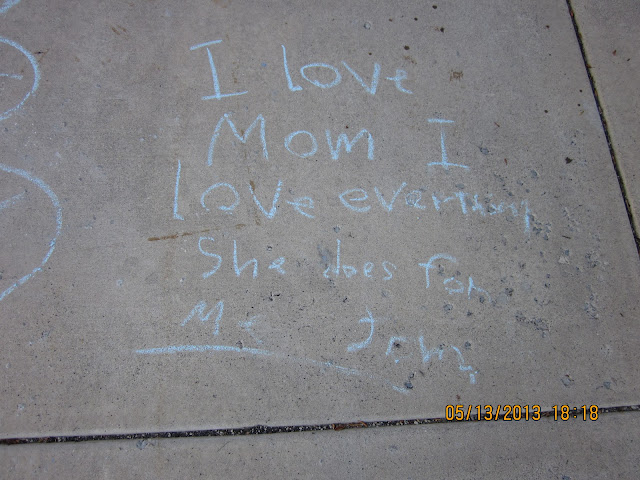 I love
Mom I
love
She does for
Me
05/13/2013 18:18